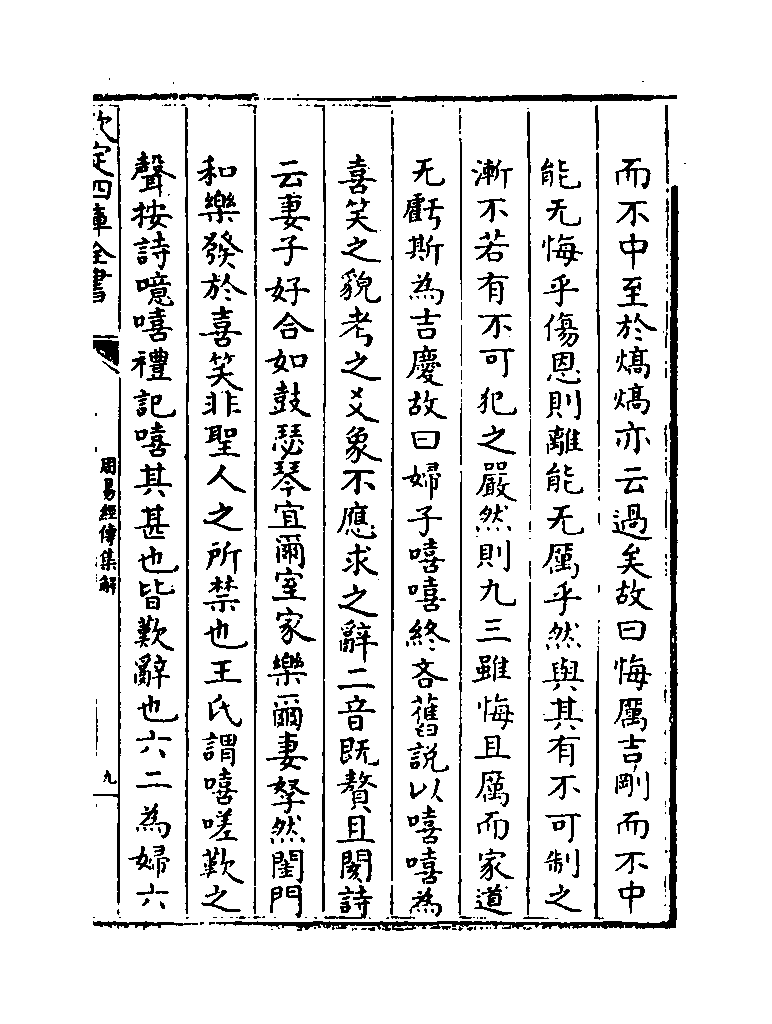 而不中至於熇熇亦云過矣故曰悔厲吉剛而不中
能无悔乎傷恩則離能无厲乎然與其有不可制之
漸不若有不可犯之嚴然則九三雖悔且厲而家道
无虧斯為吉慶故曰婦子嘻嘻終吝舊說以嘻嘻為
喜笑之貌考之爻象不應求之辭二音既贅且闕詩
云妻子好合如鼓瑟琴宜爾室家樂爾妻孥然閨門
和樂發於喜笑非聖人之所禁也王氏謂嘻嗟歎之
聲按詩噫嘻禮記嘻其甚也皆歎辭也六二為婦六
欽定四庫全書
周易經傳集解
九